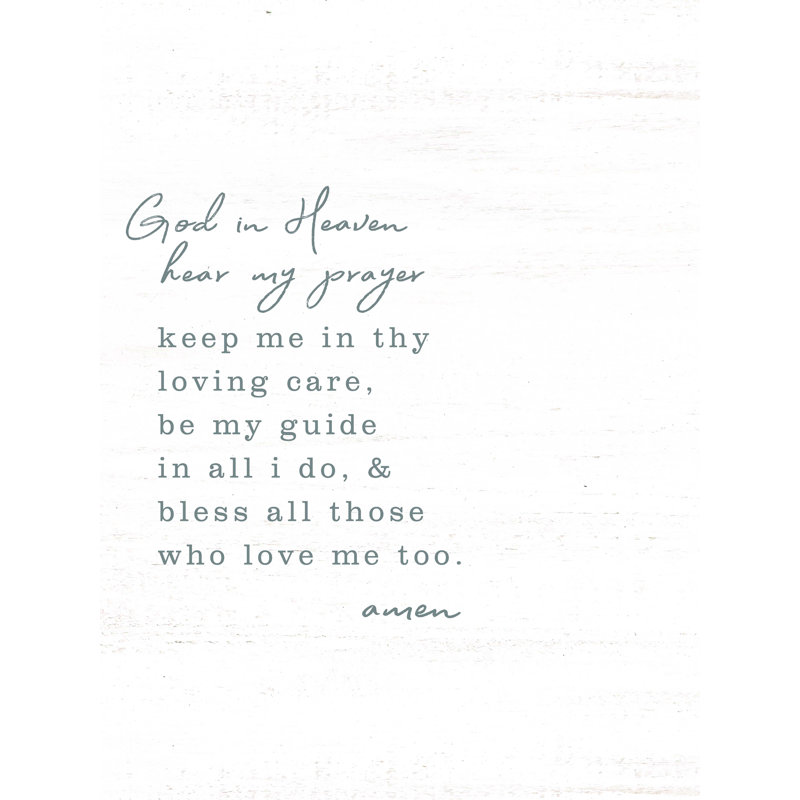 God in Heaven
hear my prayer
keep me in thy
loving care,
be my guide
in all i do, &
bless all those
who love me too.
amen